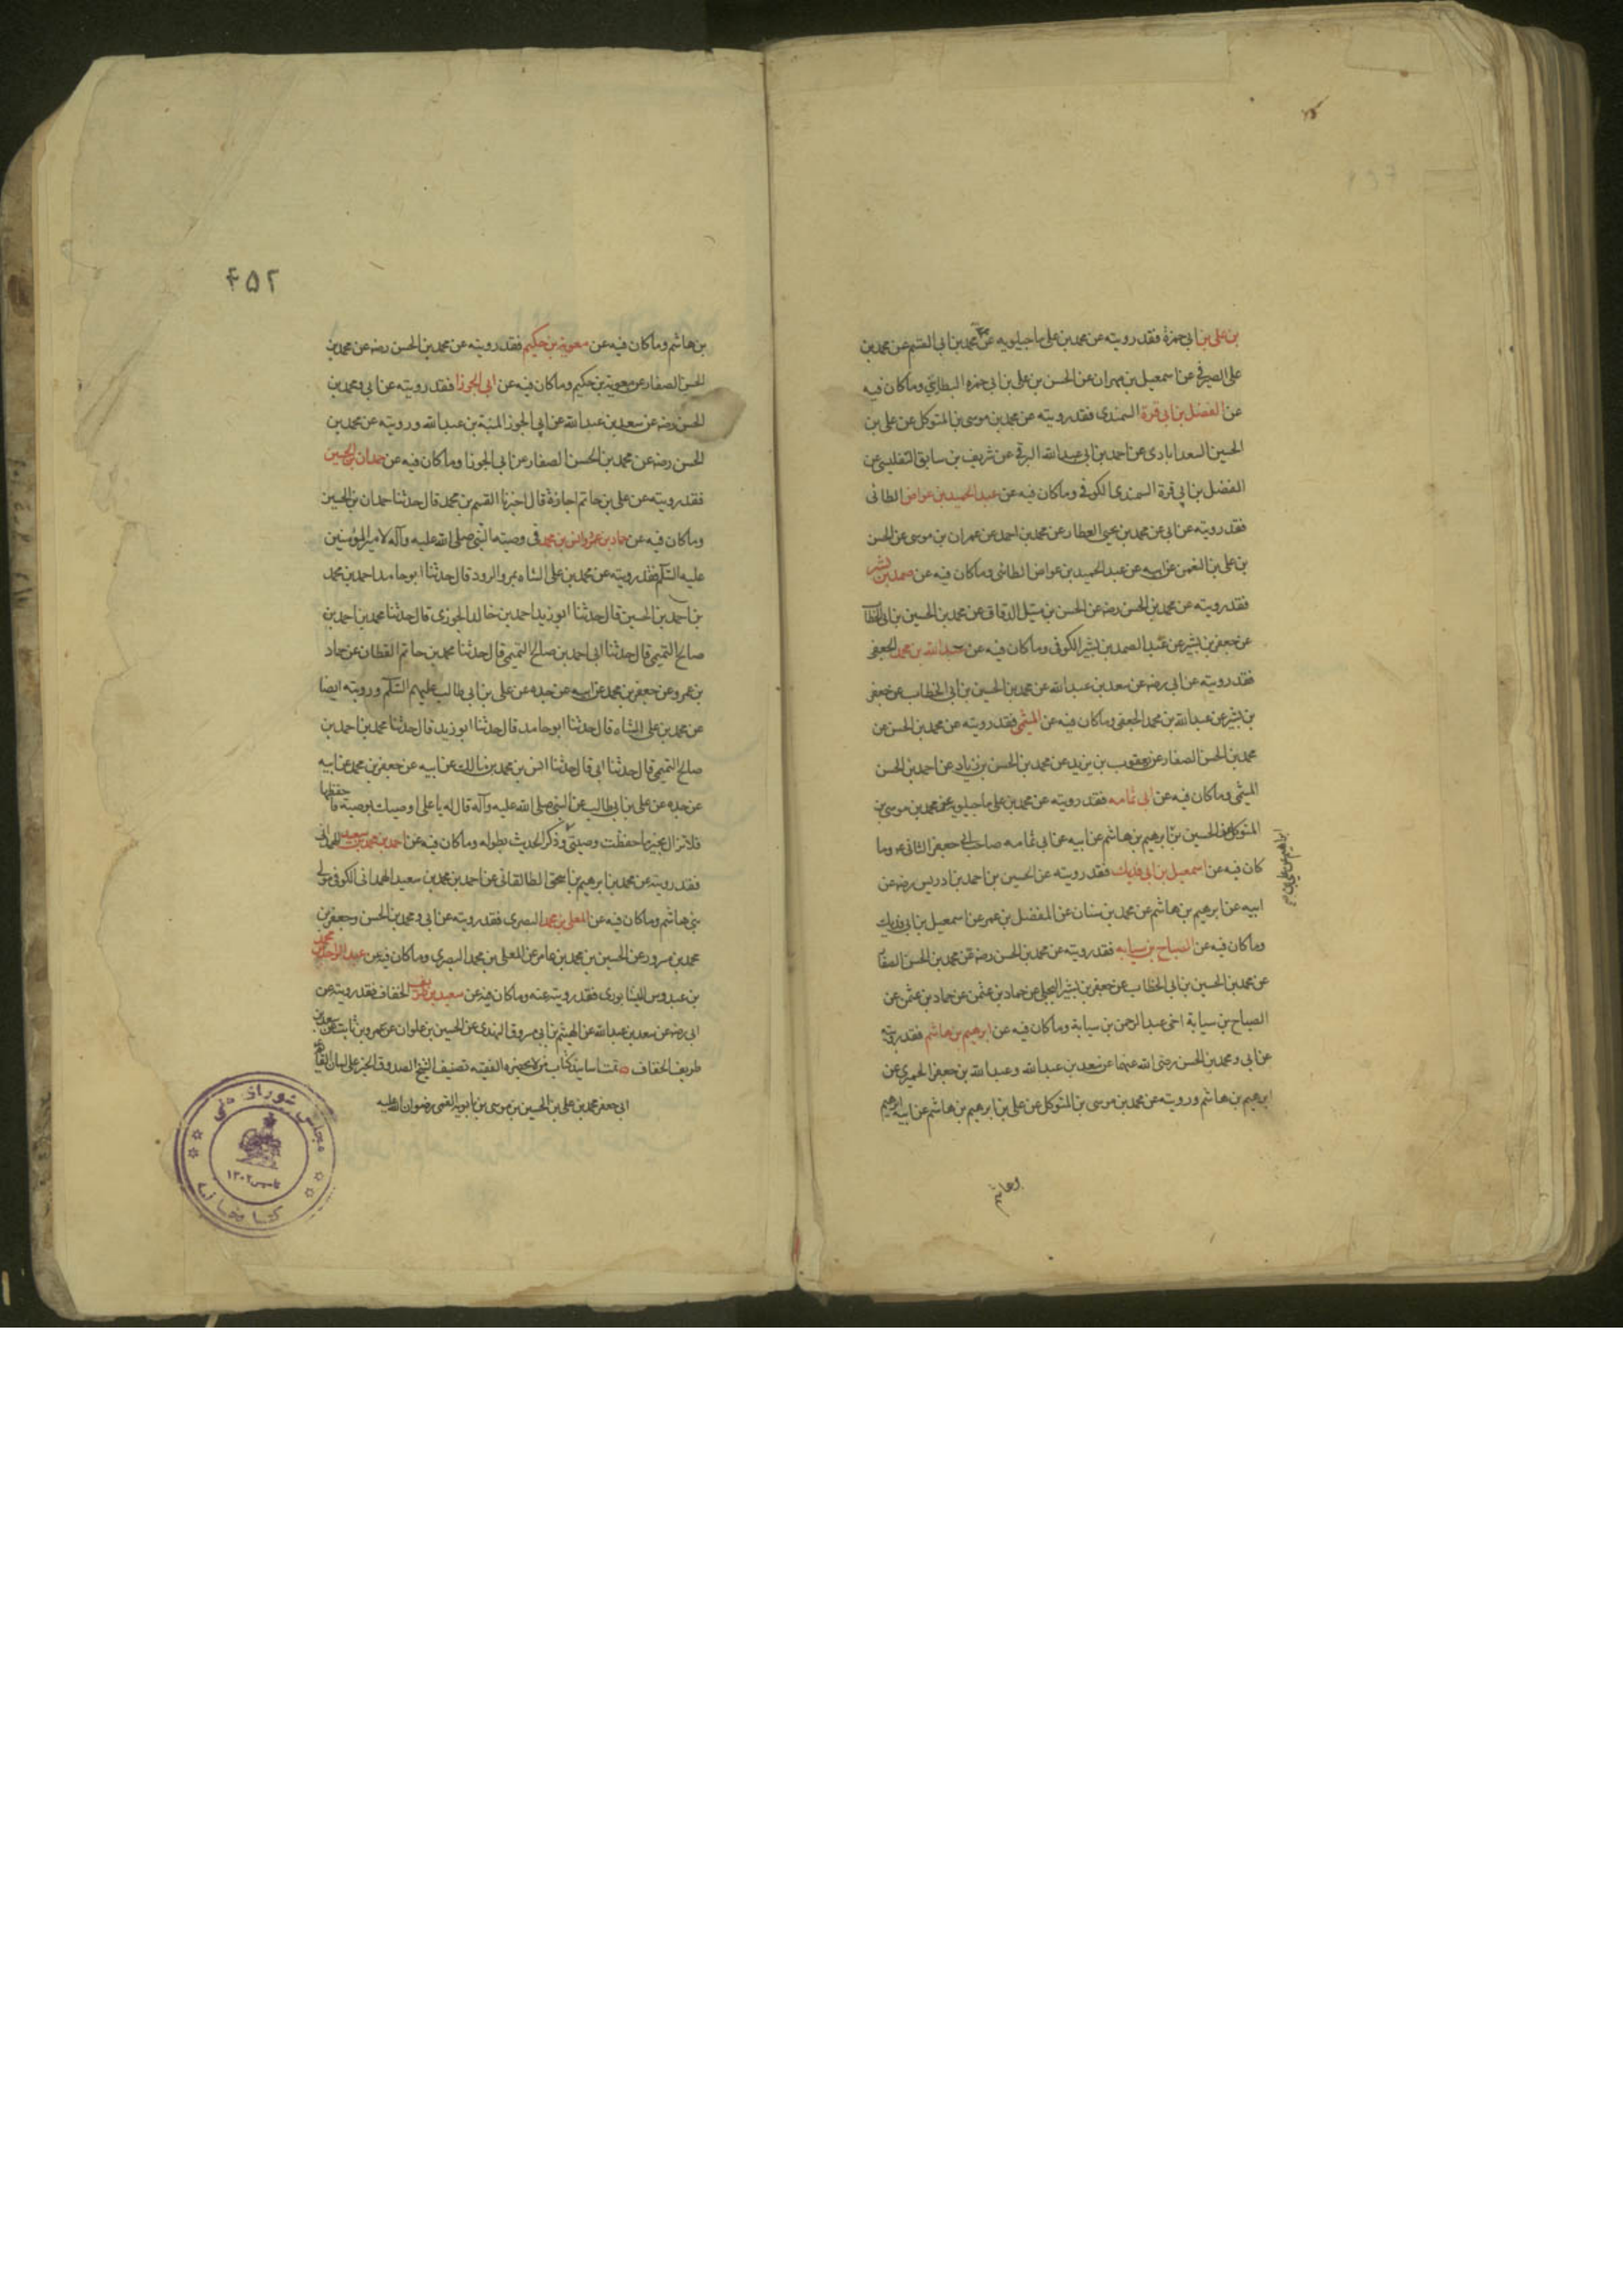 بن علی بن ابی حمزة فقد رویته عن محمد بن علی ماجیلویه عن محمد بن ابی القسم عن محمد بن
علی الصیرفی عن اسمعیل بن مهران عن الحسن بن علی بن ابی حمزه البطاینی وما کان فیه
عن الفضل بن ابی قرة السمندی فقد رویته عن محمد بن موسی بن المتوکل عن علی بن
الحسین السعدابادی عن احمد بن ابی عبد الله البرقی عن شریف بن سابق التفلیسی عن
الفضل بن ابی قرة السمندی الکوفی وما کان فیه عن عبد الحمید بن عواض الطائی
فقد رویته عن ابی عن محمد بن یحیی العطار عن محمد بن احمد عن عمران بن موسی عن الحسن
بن علی بن النعمن عن ابیه عن عبد الحمید بن عواض الطائی وما کان فیه عن صمد بن بشیر
فقد رویته عن محمد بن الحسن رضه عن الحسن بن متیل الدقاق عن محمد بن الحسین بن ابی الخطاب
عن جعفر بن بشیر عن عبد الصمد بن بشیر الکوفی وما کان فیه عن عبد الله بن محمد الجعفی
فقد رویته عن ابی رضه عن سعد بن عبد الله عن محمد بن الحسین بن ابی الخطاب عن جعفر
بن بشیر عن عبد الله بن محمد الجعفی وما کان فیه عن المیثمی فقد رویته عن محمد بن الحسن عن
محمد بن الحسن الصفار عن یعقوب بن یزید عن محمد بن الحسن بن زیاد عن احمد بن الحسن
المیثمی وما کان فیه عن ابی ثمامه فقد رویته عن محمد بن علی ماجیلویه عن محمد بن موسی بن
المتوکل عن الحسین بن ابرهیم بن هاشم عن ابیه عن ابی ثمامه صاحب ابی جعفر الثانی ع وما
کان فیه عن اسمعیل بن ابی فدیك فقد رویته عن الحسین بن احمد بن ادریس رضه عن
ابیه عن ابرهیم بن هاشم عن محمد بن سنان عن المفضل بن عمر عن اسمعیل بن ابی فدیك
وما کان فیه عن الصباح بن سیابه فقد رویته عن محمد بن الحسن رضه عن محمد بن الحسن الصفار
عن محمد بن الحسین بن ابی الخطاب عن جعفر بن بشیر البجلی عن حماد بن عثمن عن حماد بن عثمن عن
الصباح بن سیابة اخی عبد الرحمن بن سیابة وما کان فیه عن ابرهیم بن هاشم فقد رویته
عن ابی ومحمد بن الحسن رضی الله عنهما عن سعد بن عبد الله وعبد الله بن جعفر الحمیری عن
ابرهیم بن هاشم ورویته عن محمد بن موسی بن المتوکل عن علی بن ابرهیم بن هاشم عن ابیه ابرهیم
بن هاشم
۴۵۲
بن هاشم وما کان فیه عن معویة بن حکیم فقد رویته عن محمد بن الحسن رضه عن محمد بن
الحسن الصفار عن معویة بن حکیم وما کان فیه عن ابی الجوزا فقد رویته عن ابی ومحمد بن
الحسن رضه عن سعد بن عبد الله عن ابی الجوزا المنبة بن عبد الله ورویته عن محمد بن
الحسن رضه عن محمد بن الحسن الصفار عن ابی الجوزا وما کان فیه عن حمدان بن الحسین
فقد رویته عن علی بن حاتم اجازة قال اخبرنا القسم بن محمد قال حدثنا حمدان بن الحسین
وما کان فیه عن حماد بن عمرو وانس بن محمد فی وصیته النبی صلی الله علیه وآله لامیر المؤمنین
علیه السلم فقد رویته عن محمد بن علی الشاه بمرو الرود قال حدثنا ابو حامد احمد بن محمد
بن احمد بن الحسین قال حدثنا ابو زید احمد بن خالد الجوزی قال حدثنا محمد بن احمد بن
صالح التمیمی قال حدثنا ابی احمد بن صالح التمیمی قال حدثنا محمد بن حاتم القطان عن حماد
بن عمرو عن جعفر بن محمد عن ابیه عن جده عن علی بن ابی طالب علیهم السلم ورویته ایضا
عن محمد بن علی الشاه قال حدثنا ابو حامد قال حدثنا ابو زید قال حدثنا محمد بن احمد بن
صالح التمیمی قال حدثنا ابی قال حدثنا انس بن محمد بن مالك عن ابیه عن جعفر بن محمد عن ابیه
عن جده عن علی بن ابی طالب عن النبی صلی الله علیه وآله قال له یا علی اوصیك بوصیة فاحفظها
فلا تزال بخیر ما حفظت وصیتی وذکر الحدیث بطوله وما کان فیه عن احمد بن محمد بن سعید الهمدانی
فقد رویته عن محمد بن ابرهیم بن اسحق الطالقانی عن احمد بن محمد بن سعید الهمدانی الکوفی مولی
بنی هاشم وما کان فیه عن المعلی بن محمد البصری فقد رویته عن ابی ومحمد بن الحسن وجعفر بن
محمد بن مسرور عن الحسین بن محمد بن عامر عن المعلی بن محمد البصری وما کان فیه عن عبد الواحد بن محمد
بن عبدوس النیشابوری فقد رویته عنه وما کان فیه عن سعید بن طریف الخفاف فقد رویته عن
ابی رضه عن سعد بن عبد الله عن الهیثم بن ابی مسروق النهدی عن الحسین بن علوان عن عمرو بن ثابت عن سعد بن
طریف الخفاف تمت اسانید کتاب من لا یحضره الفقیه تصنیف الشیخ الصدوق
ابی جعفر محمد بن علی بن الحسین بن موسی بن بابویه القمی رضوان الله علیه
مجلس شورای ملی
تاسیس ۱۳۰۲
کتابخانه